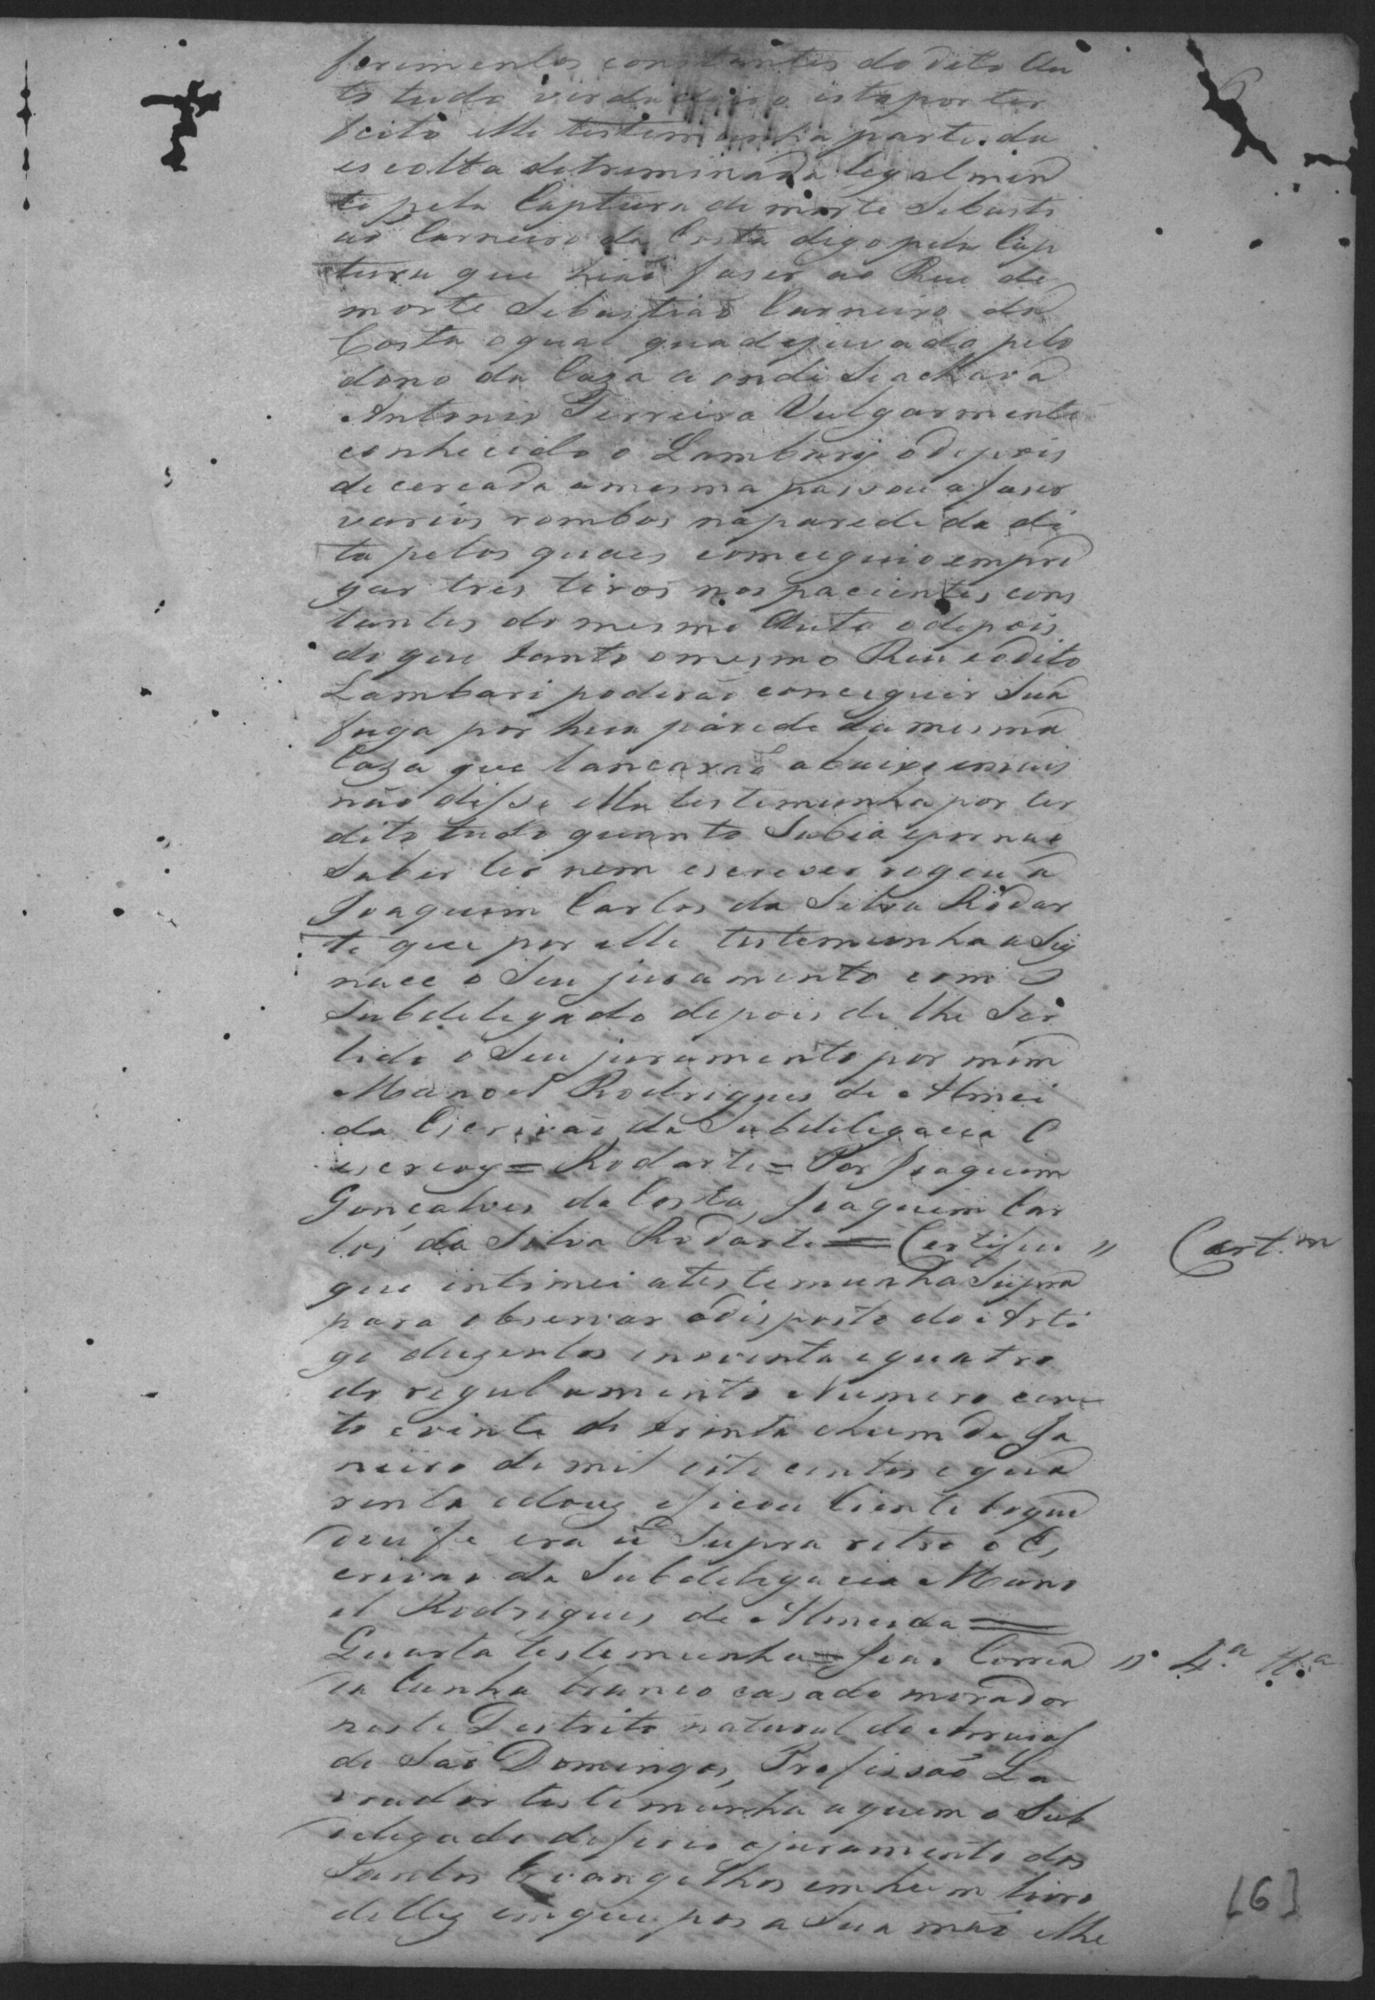 6
ferimentos constantes do dito Au
to tudo verdadeiro isto por ter
feito elle testemunha parte da
escolta detreminada legalmen
te pela Captura de morte Sebasti
ao Carneiro da Costa digo pela Cap
tura que hiaõ faser ao Reu de
morte Sebastiaõ Carneiro da
Costa o qual quadejuvado pelo
dono da Caza a onde se achava
Antonio Ferreira Vulgarmente
conhecido o Lambary o depois
de cercada a mesma passou a faser
varios rombos na parede da di
ta pelos quaes comceguio empre
gar tres tiros nos pacientes cons
tantes do mesmo Auto o depois
do que tanto o mesmo Reu e o dito
Lambari poderão conceguir sua
fuga por hua párede da mesma
Caza que lancaraõ abaixo e mais
não disse ella testemunha por ter
dito tudo quanto Sabia e por naõ
Saber ler nem escrever rogou a
Joaquim Carlos da Silva Rodar
te que por elle testemunha a Sig
nace o Seu juramento com o
Subdelegado depois de lhe Ser
lido o Seu juramento por mim
Manoel Rodrigues de Almei
da Escrivão da Subdelegacia O
escrevy = Rodarte = Por Joaquim
Gonçalves da Costa, Joaquim Car
los da Silva Rodarte = Certifico "
Cert.m
que intimei a testemunha Supra
para observar o disposto do Arti
go duzentos e noventa e quatro
do regulamento Numero cen
to e vinte de trinta e hum de Ja
neiro de mil oito centos e qua
renta e douz e ficou Ciente do que
dou fe era ut Supra retro o Es
crivao da Subdelegacia Mano
el Rodrigues de Almeida =
Quarta testemunha = Joao Correa
4.ª T.ª
da Cunha branco casado morador
neste Destrito natural do Arraial
de São Domingos, Profissaõ La
vrador testemunha a quem o Sub
delegado deferio o juramento dos
Santos Evangelhos em hum livro
delles em que pos a Sua mão elhe
[6]